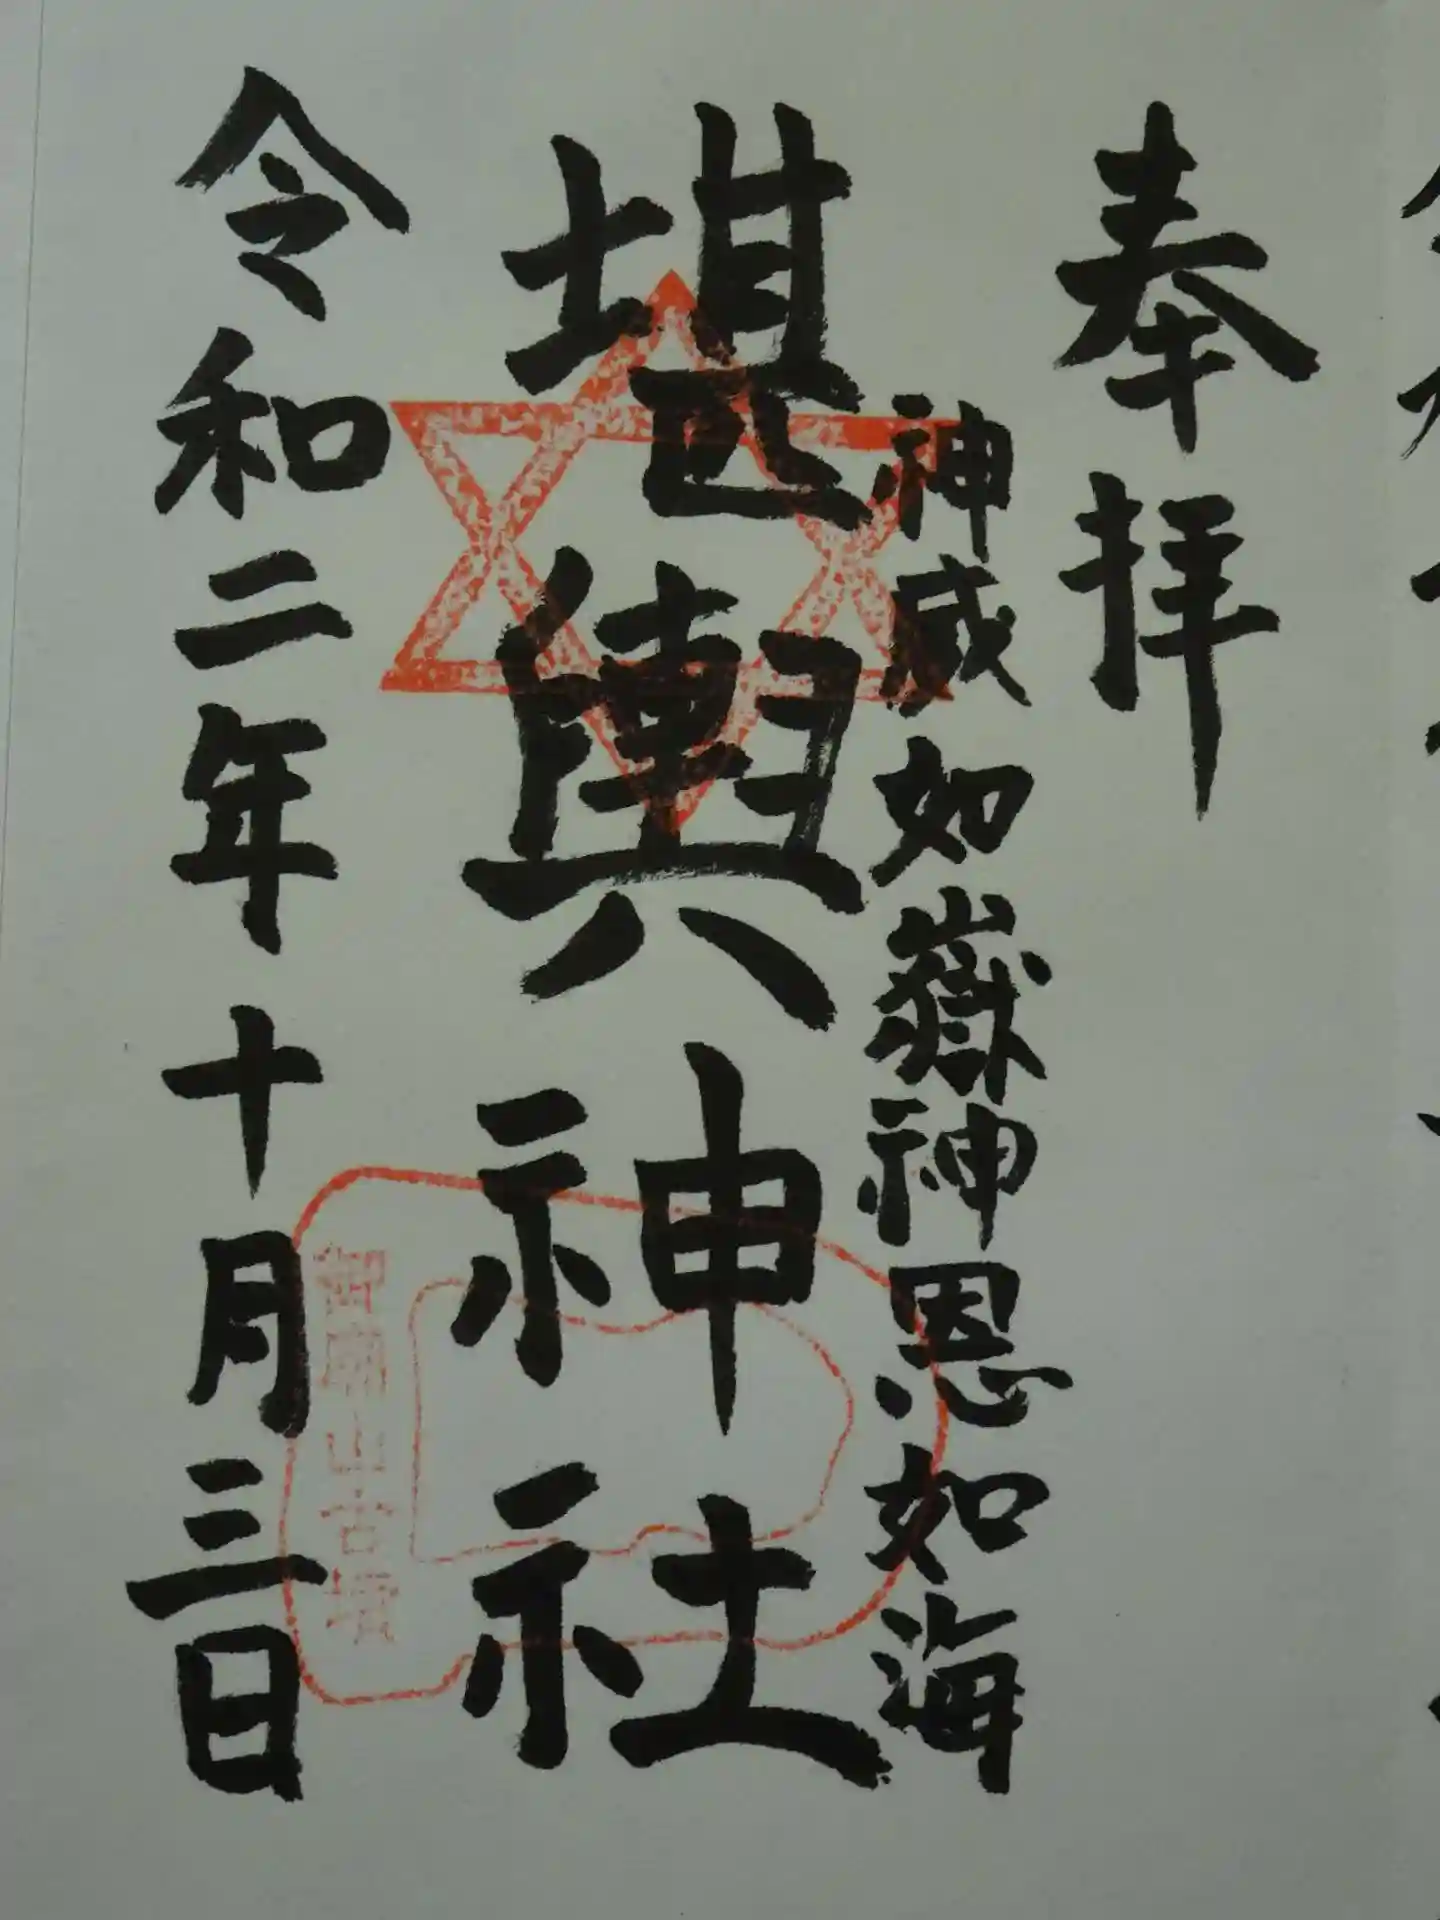 奉拝
神威如嶽神恩如海
堪輿神社
令和二年十月三日
御廟山古墳